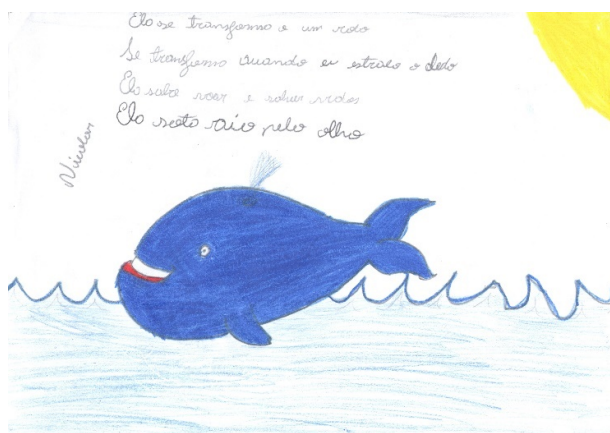 Ela se transforma e um robo
Se transforma quando eu estralo o dedo
Ela sabe voar e salvar vidas
Ela solta raio pelo olho
Nicolas